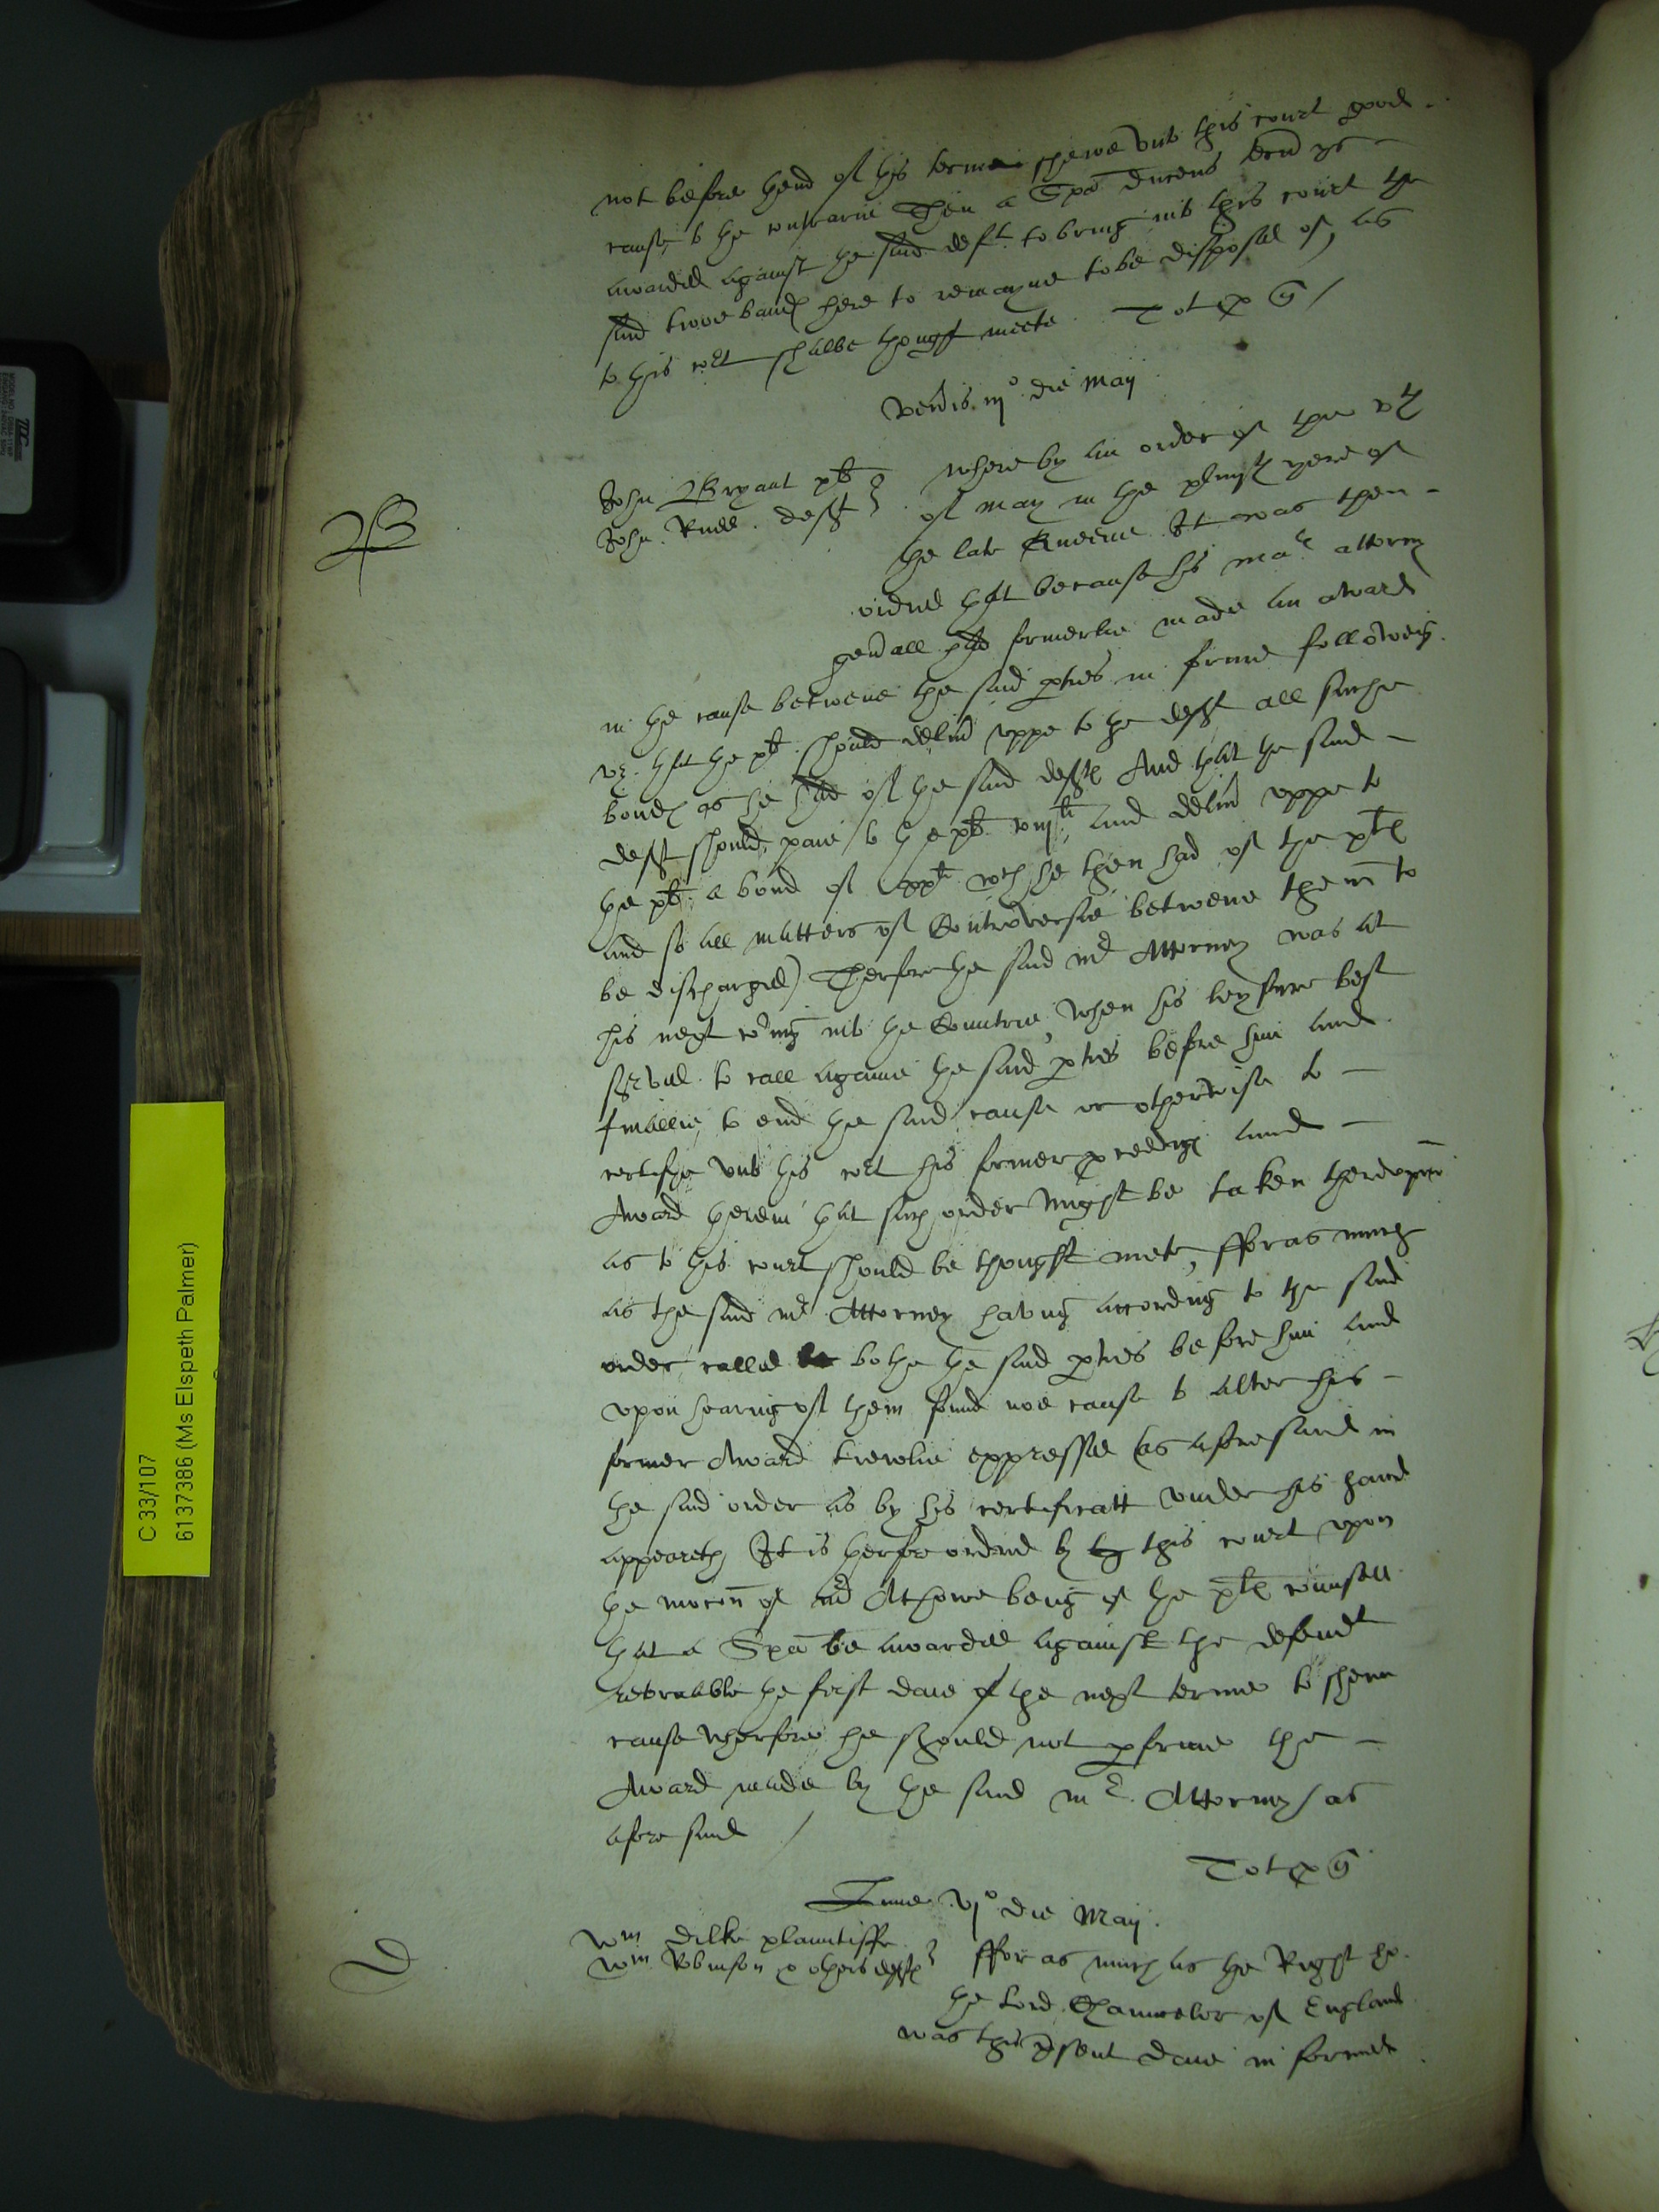 not before thend of this terme shewe unto this court good
cause to the contrarie Then a Spa ducens tecu ys
awarded against the said deft. to bring into this court the
said twoe bands here to remayne to be disposed of, as
to this cort shalbe thought meete. Tot &
Ven'is iij° die Maij
John Bryant plt
John Rudd. deft
Whereby an order of the
of May in the yere of
the late Queene It was then
ordred that because his matie attorny
gen'all had formerlie made an award
in the cause betweene the said pties in forme followeing.
vz. that the plt should deliu' uppe to the deft all suche
bonds as he had of the said defts And that the said
deft should paie to the plt and deliu' uppe to
the plt a bond of wch he then had of the plts
and so all matters of Controversie betweene them to
be discharged) Therfore the said mr Attorney was at
his next co'ming into the Countrie, when his leysure best
serued to call againe the said pties before him and
finallie to end the said cause or otherwise to
certifye unto this cort his former p'ceedings and
Award herein that such order might be taken thereupon
as to this court should be thought mete, fforasmuch
as the said mr Attorney having according to the said
order called bothe the said pties before him and
upon hearing of them found noe cause to alter his
former Award trewlie expressed (as aforesaid in
the said order as by his certificatt under his hand
appeareth It is therfore ordred by this court upon
the moc'on of mr Athowe being of the plts counsell
that a Spa be awarded against the defendt
retornable the first daie of the next terme to shewe
cause wherfore he should not p'forme the
Award made by the said mr. Attorney as
aforesaid /
Tot &
Lune vj° die Maij.
Wm Dilke plaintiffe
Wm Robinson & others defts
fforasmuch as the Right ho.
the Lord Chauncelor of England
was this p'sent daie informed
C 33/107
6137386 (Ms Elspeth Palmer)